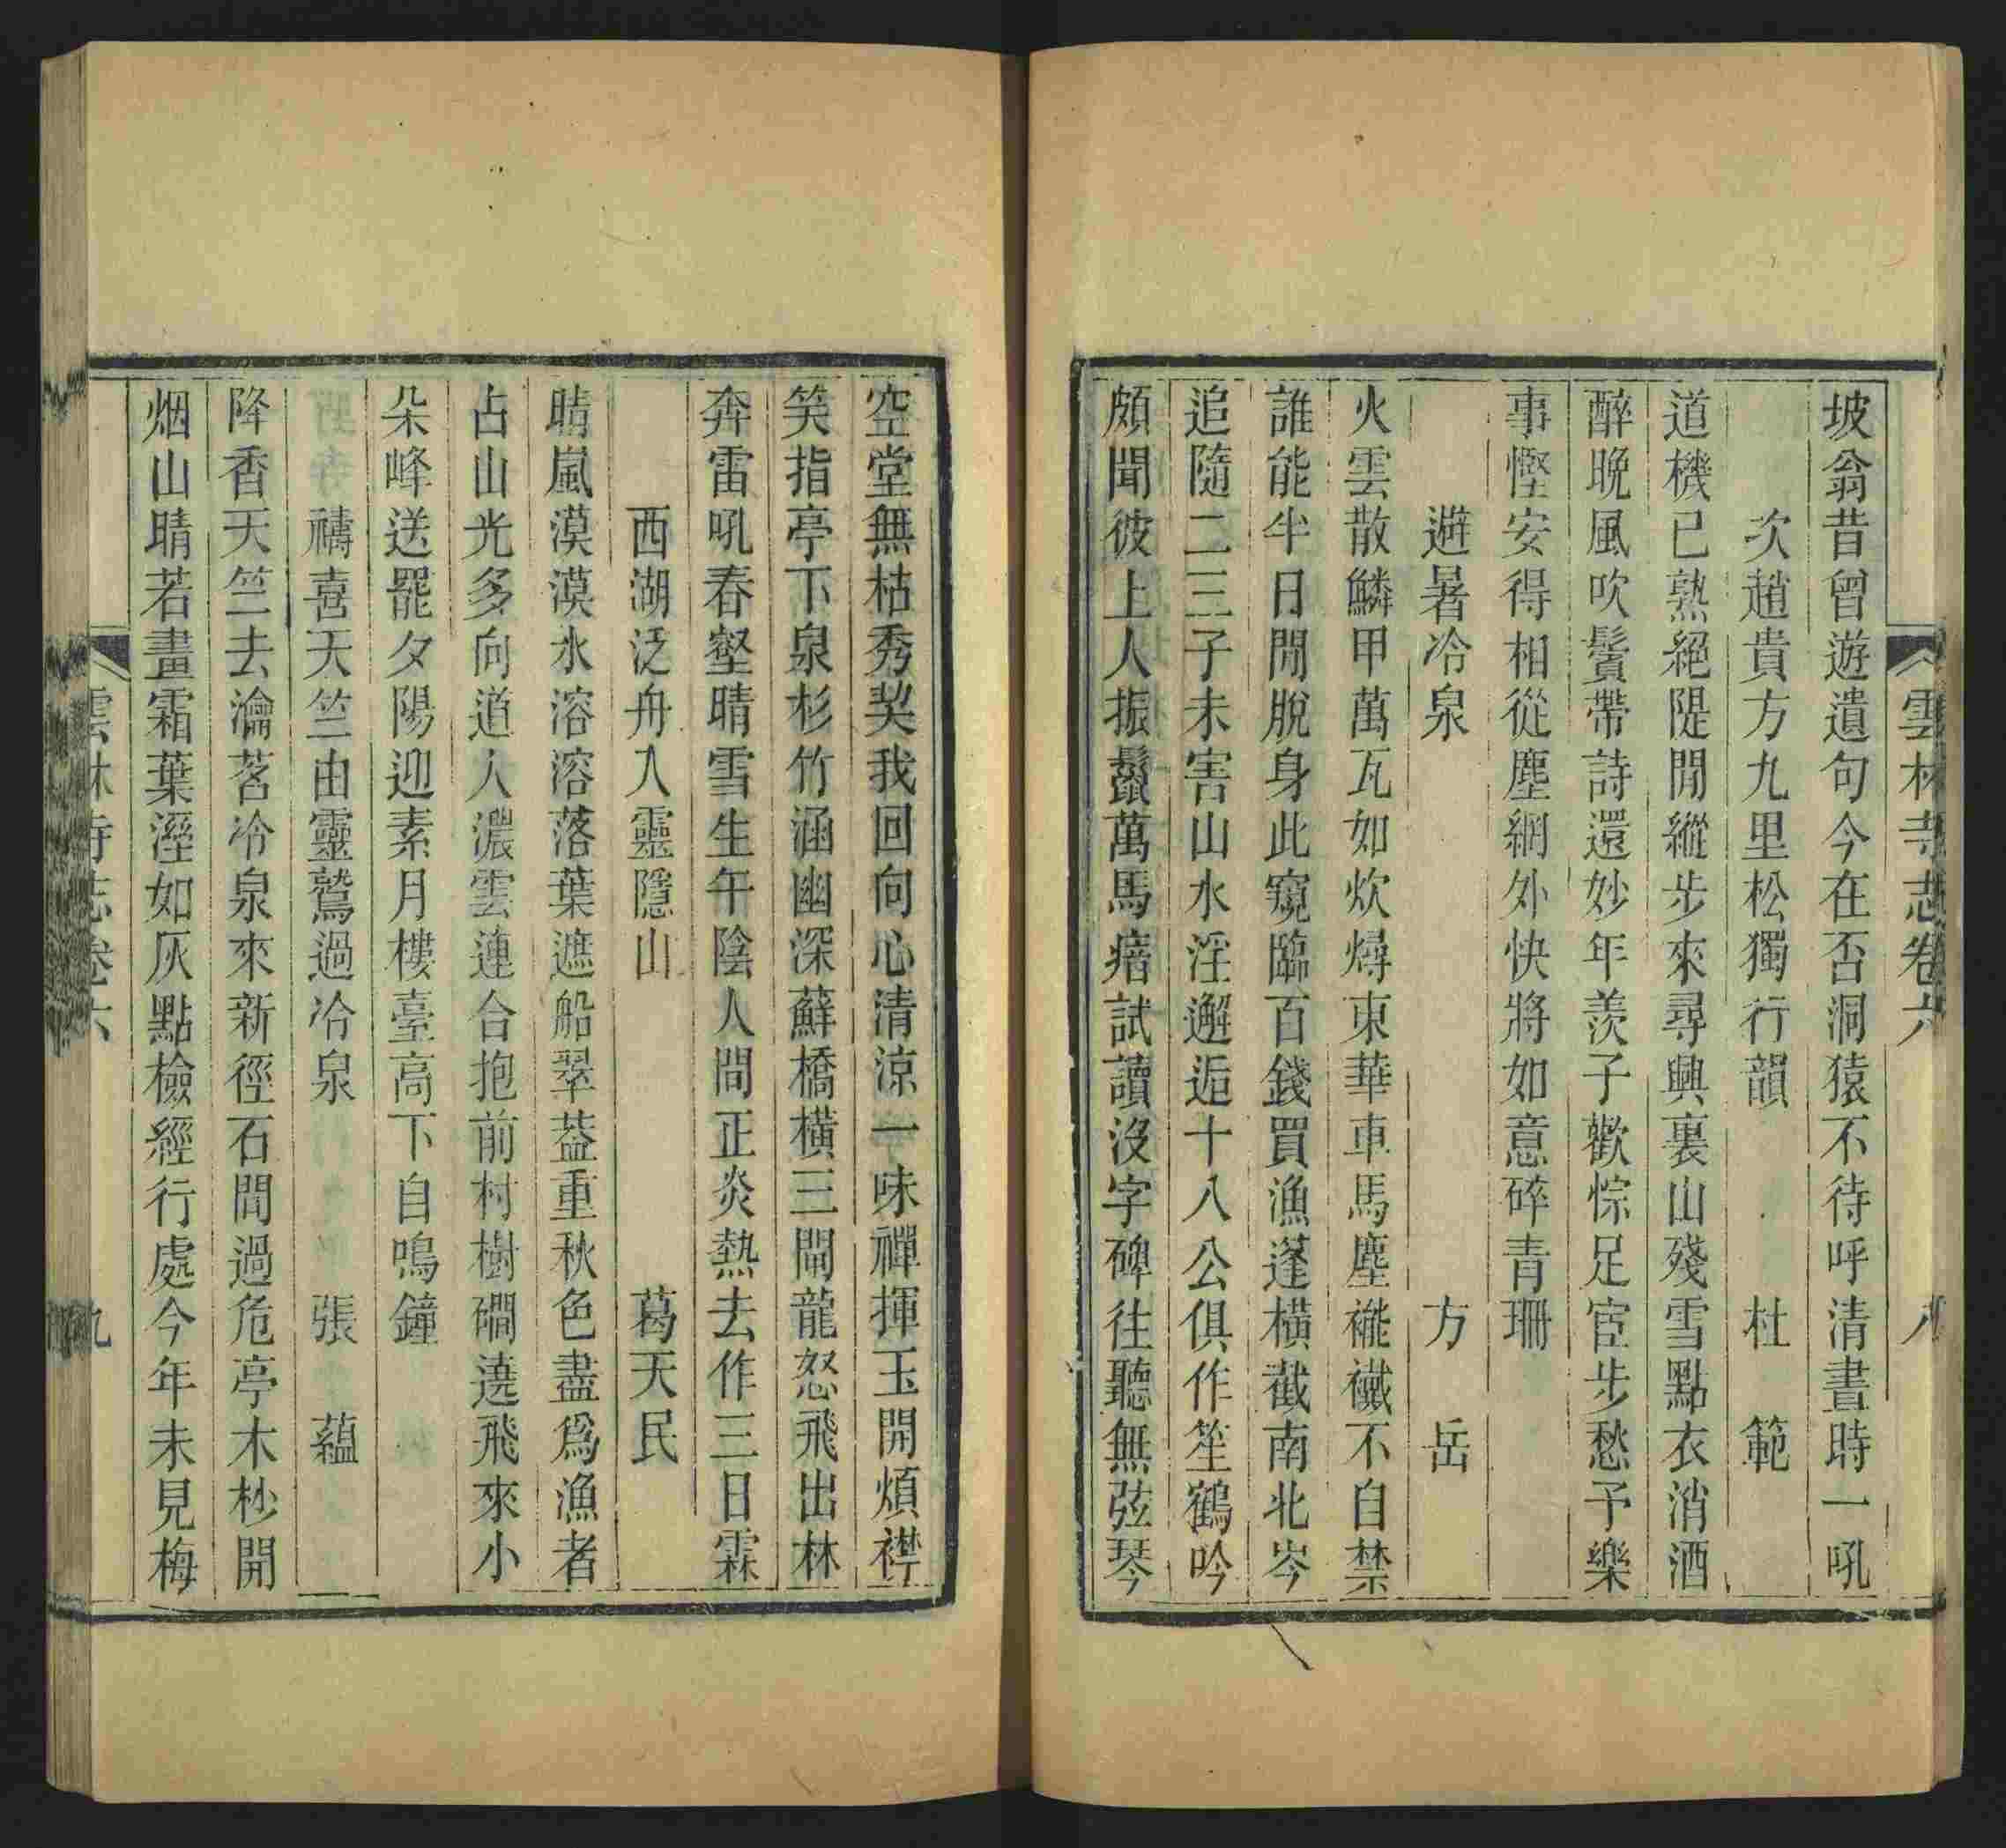 雲林寺志卷六 八
坡翁昔曾遊遺句今在否洞猿不待呼清晝時一吼
次趙貴方九里松獨行韻 杜範
道機已熟絕隄閒縱步來尋興裏山殘雪點衣消酒
醉晚風吹鬢帶詩還妙年羨子歡悰足宦步愁予樂
事慳安得相從塵網外快將如意碎青珊
避暑冷泉 方岳
火雲散鱗甲萬瓦如炊燖東華車馬塵襹襶不自禁
誰能半日閒脫身此窺臨百錢買漁蓬橫截南北岑
追隨二三子未害山水淫邂逅十八公俱作笙鶴吟
頗聞彼上人振鬣萬馬瘖試讀沒字碑往聽無弦琴
空堂無枯秀契我回向心清涼一味禪揮玉開煩襟
笑指亭下泉杉竹涵幽深蘇橋橫三閘龍怒飛出林
奔雷吼春壑晴雪生午陰人間正炎熱去作三日霖
西湖泛舟入靈隱山 葛天民
晴嵐漠漠水溶溶落葉遮船翠葢重秋色盡爲漁者
占山光多向道人濃雲連合抱前村樹磵遶飛來小
朵峰送罷夕陽迎素月樓臺高下自鳴鐘
禱喜天竺由靈鷲過冷泉 張蘊
降香天竺去瀹茗冷泉來新徑石間過危亭木杪開
烟山晴若畫霜葉溼如灰點檢經行處今年未見梅
雲林寺志卷六 九